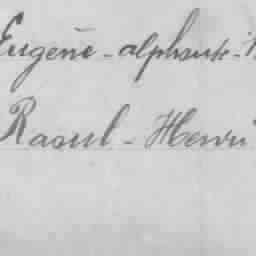 Eugène - alphonse -
Raoul - Henri